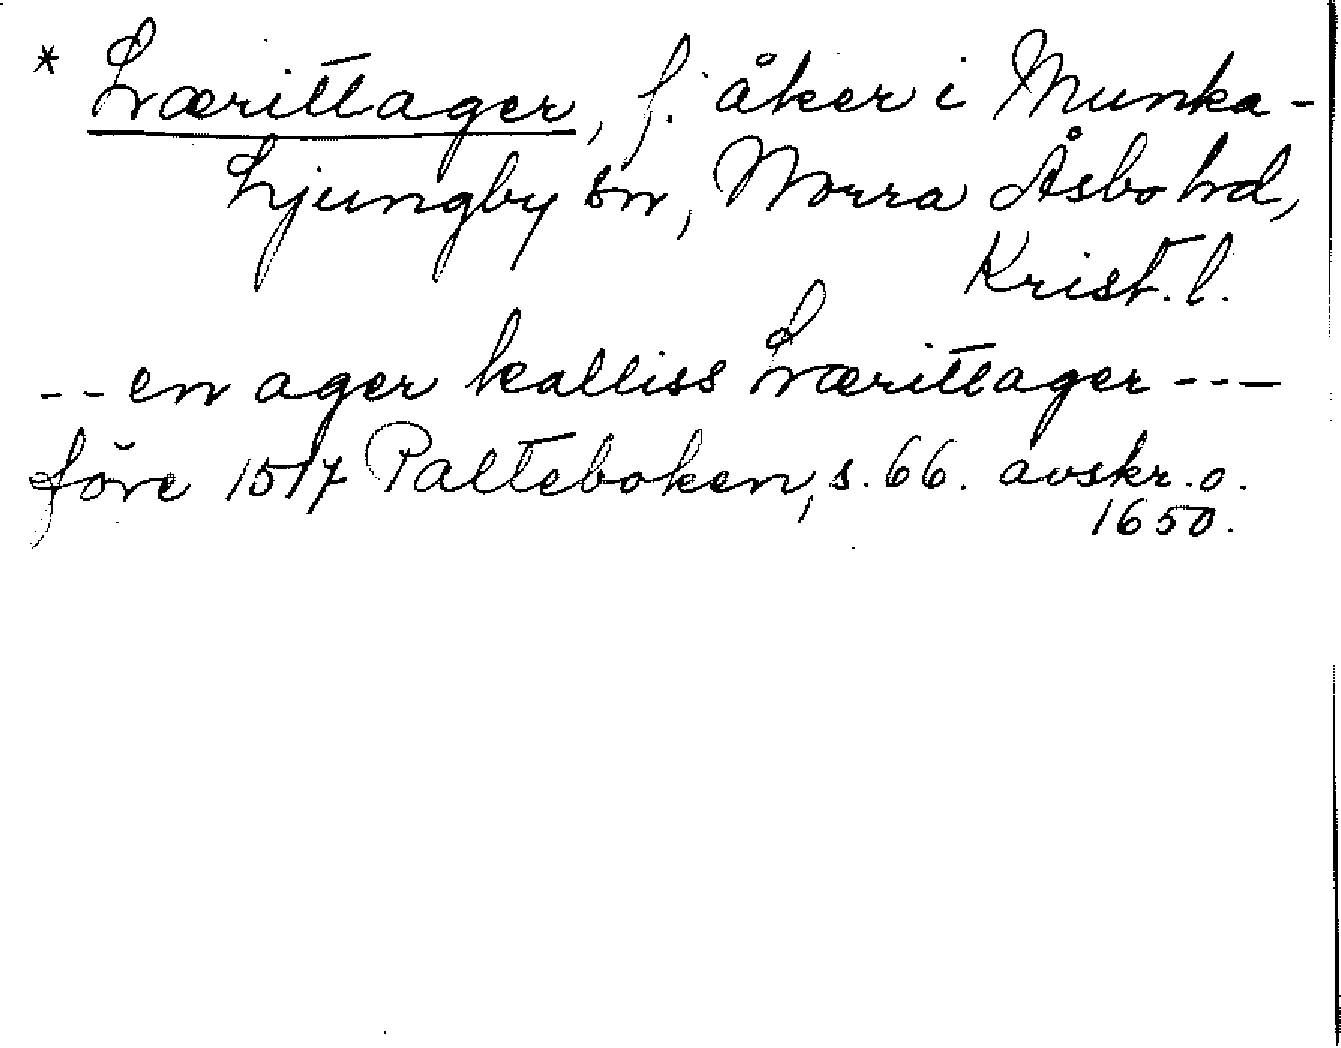 * Lværittager, f. åker i Munka-
Ljungby sn, Norra Åsbo hd,
Krist. l.
-- en ager kalliss Lværittager ---
före 1517 Palteboken, s. 66. avskr. o.
1650.